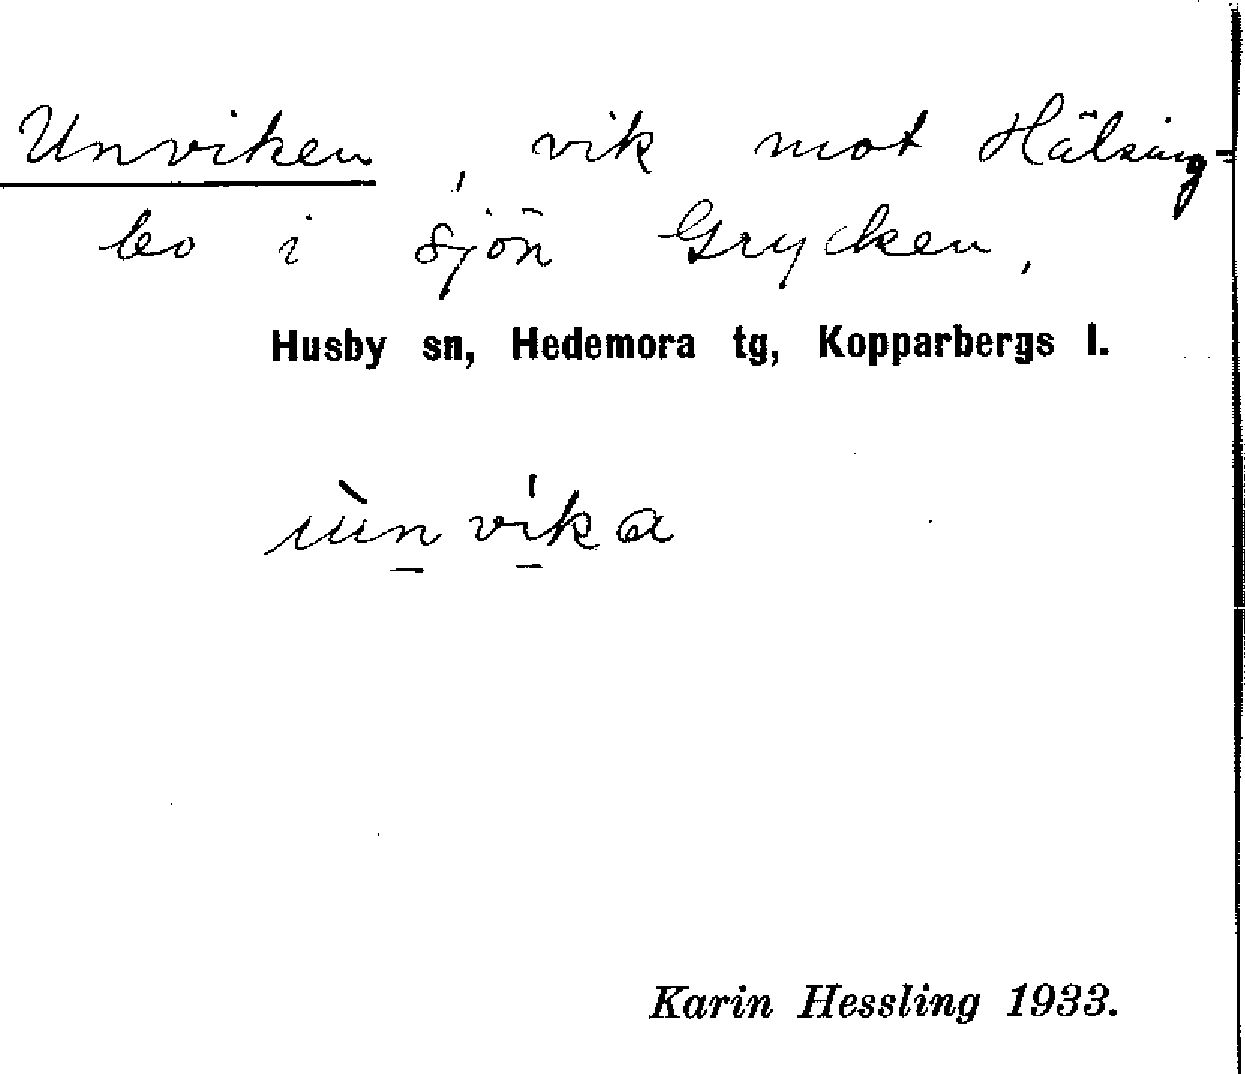 Unviken, vik mot Hälsing-
bo i sjön Grycken,
Husby sn, Hedemora tg, Kopparbergs l.
ùn víka
Karin Hessling 1933.